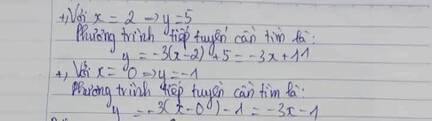 +, Với x = 2 => y = 5
Phương trình tiếp tuyến cần tìm là:
y = -3(x-2) +5 = -3x+11
+, Với x = 0 => y = -1
Phương trình tiếp tuyến cần tìm là:
y = -3(x-0) -1 = -3x-1